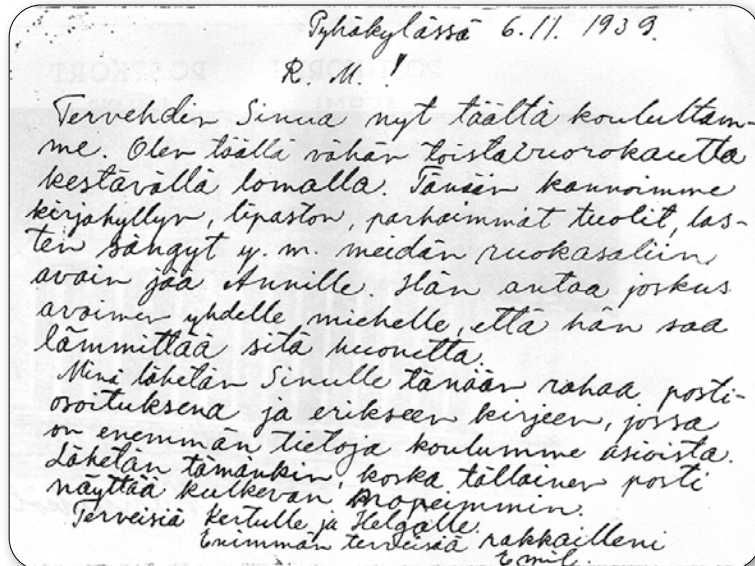 Pyhäkylässä 6.11. 1939.
R. M. !
Tervehdin Sinua nyt täältä kouluttam-
me. Olen täällä vähän toista vuorokautta
kestävällä lomalla. Tänään kannoimme
kirjahyllyn, lipaston, parhaimmat tuolit, las-
ten sängyt y. m. meidän ruokasaliin,
avain jää Annille. Hän antaa joskus
avaimen yhdelle miehelle, että hän saa
lämmittää sitä huonetta.
Minä lähetän Sinulle tänään rahaa posti-
osoituksena ja erikseen kirjeen, jossa
on enemmän tietoja koulumme asioista.
Lähetän tämänkin, koska tällainen posti
näyttää kulkevan nopeimmin.
Terveisiä Kertulle ja Helgalle.
Enimmän terveisiä rakkailleni
Emil.